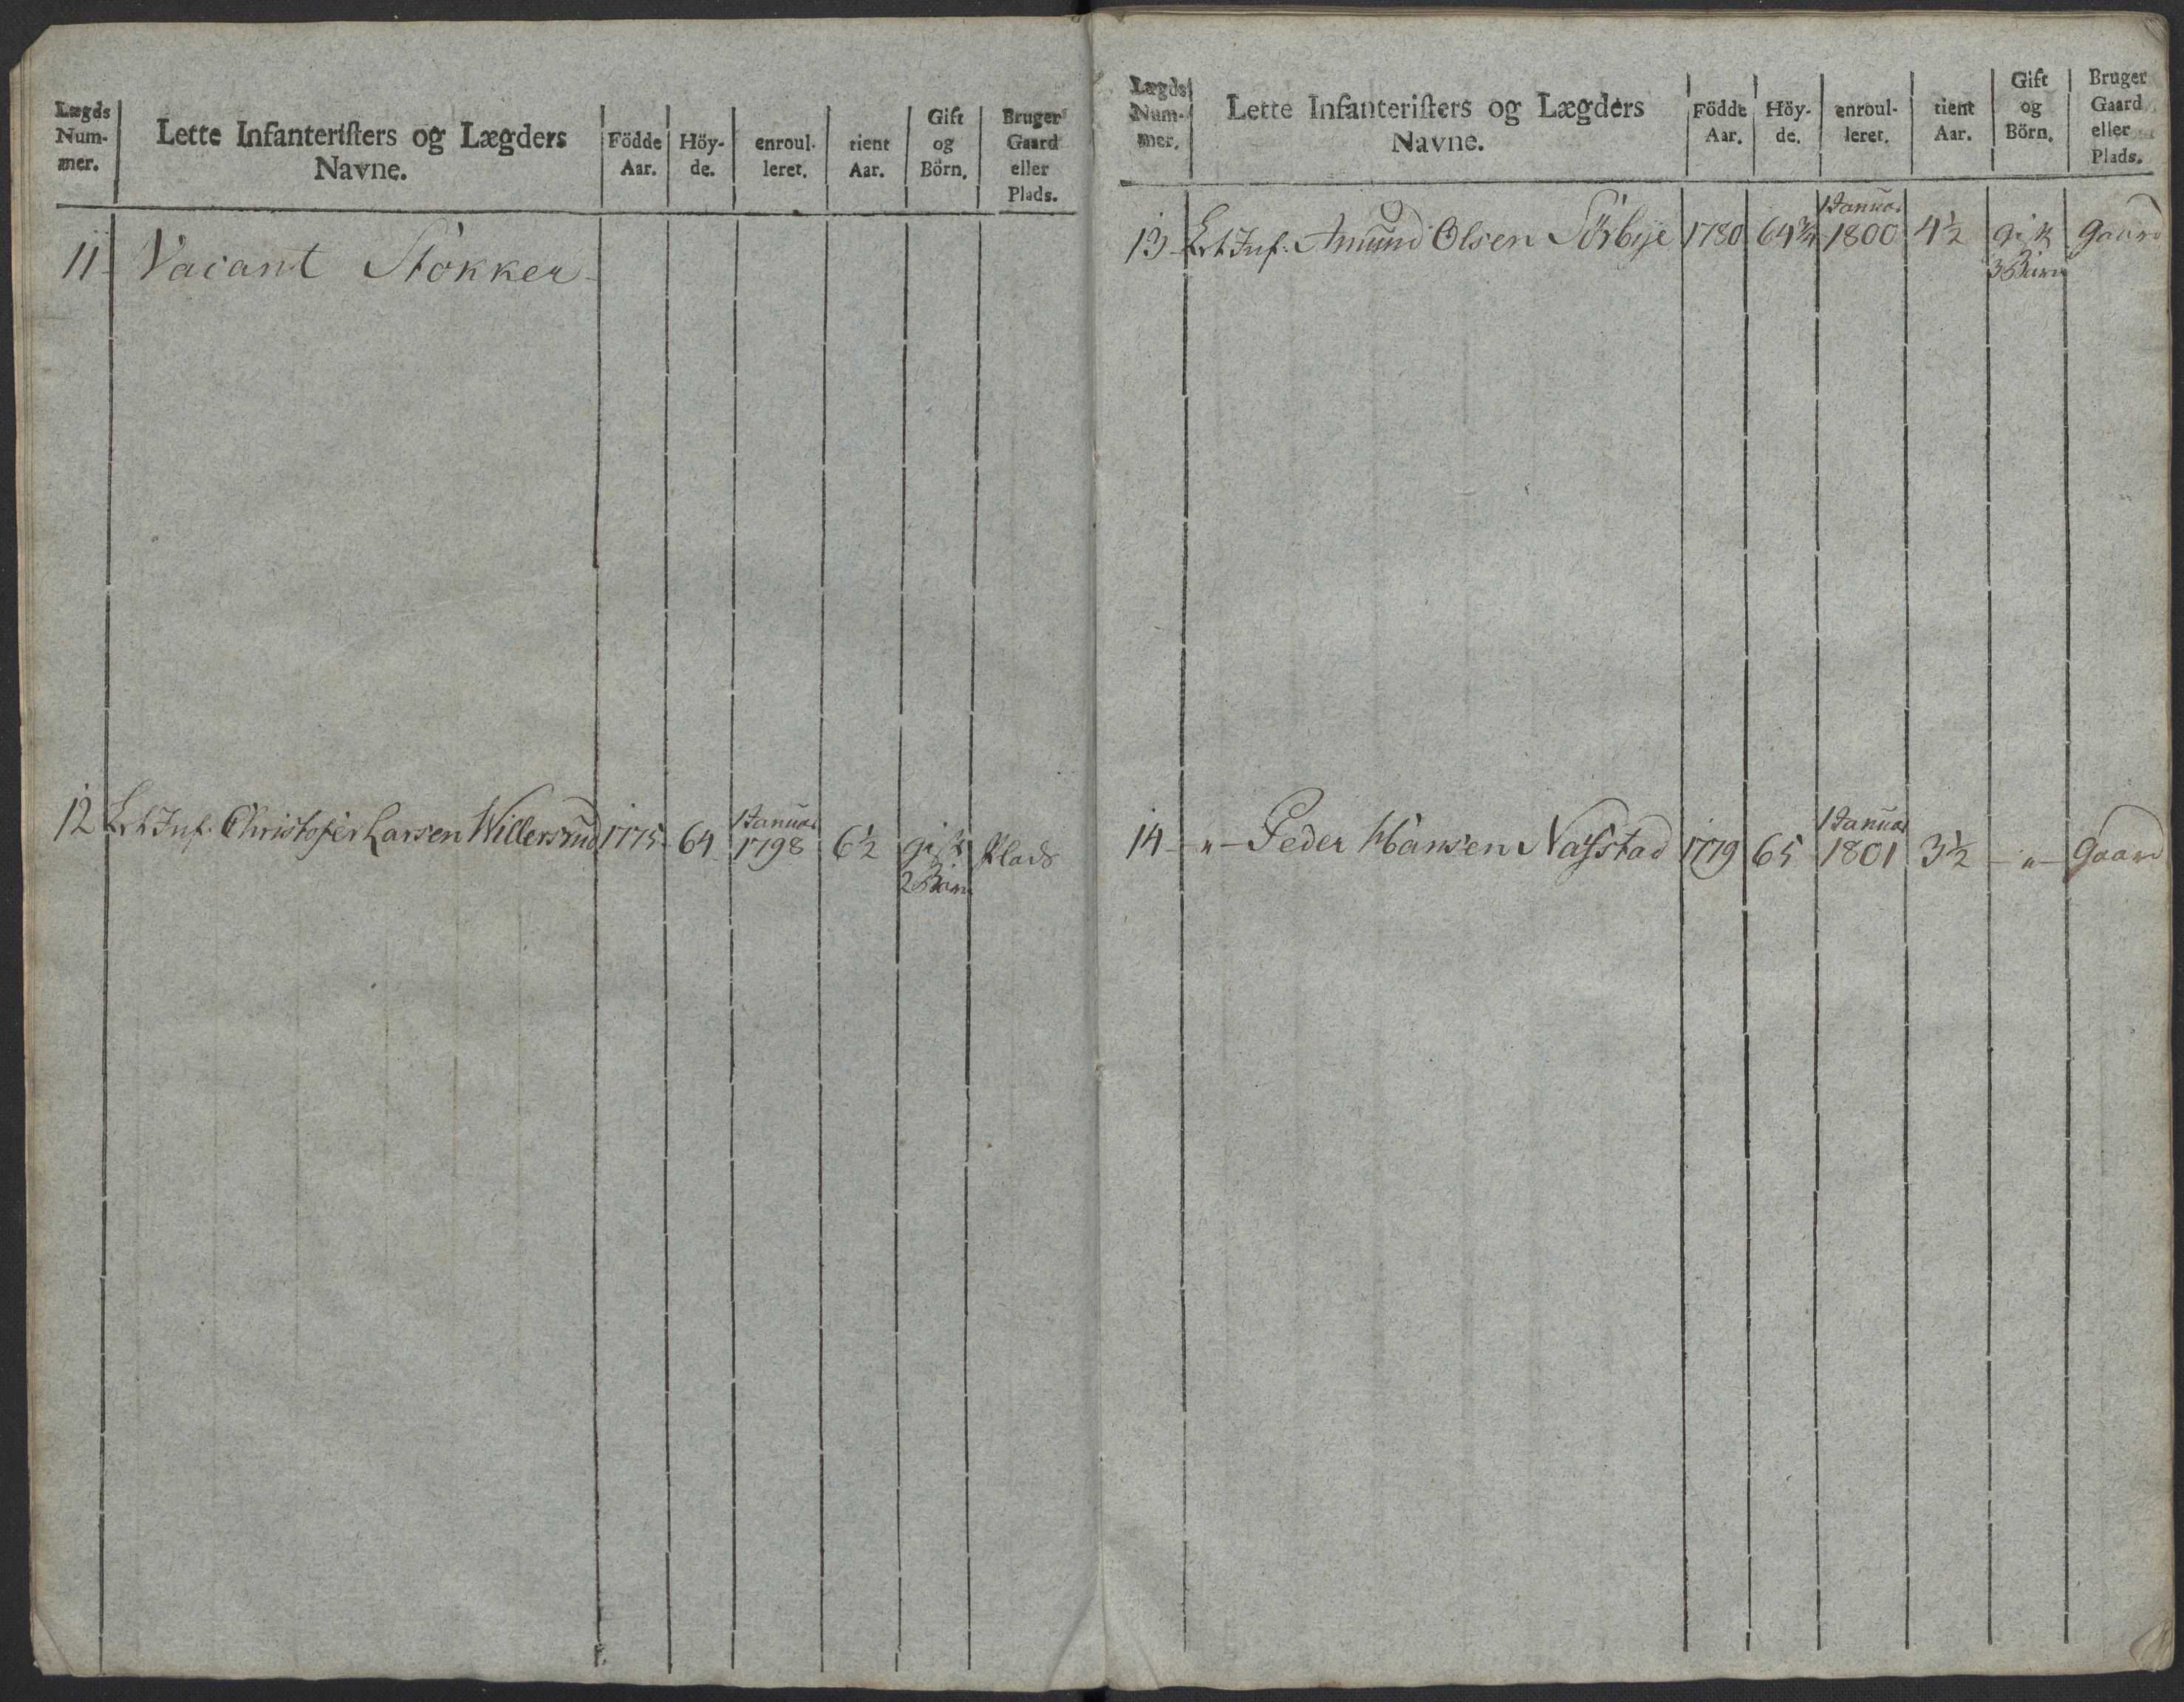 Lægds Num- mer. | Lette Infanteristers og Lægders Navne. | Födde Aar. | Höy- de. | enroul- leret. | tient Aar. | Gift og Börn. | Bruger Gaard eller Plads.
11 Vacant Stokker
12 Let Inf. Christofer Larsen Willersrud 1775 64 1 Januar 1798 6½ gift 2 Børn Plads
Lægds Num- mer. | Lette Infanteristers og Lægders Navne. | Födde Aar. | Höy- de. | enroul- leret. | tient Aar. | Gift og Börn. | Bruger Gaard eller Plads.
13 Let Inf. Amund Olsen Sörbye 1780 64¾ 1 Januar 1800 4½ gift 3 Børn Gaard
14 -"- Peder Hansen Nasstad 1779 65 1 Januar 1801 3½ -"- Gaard